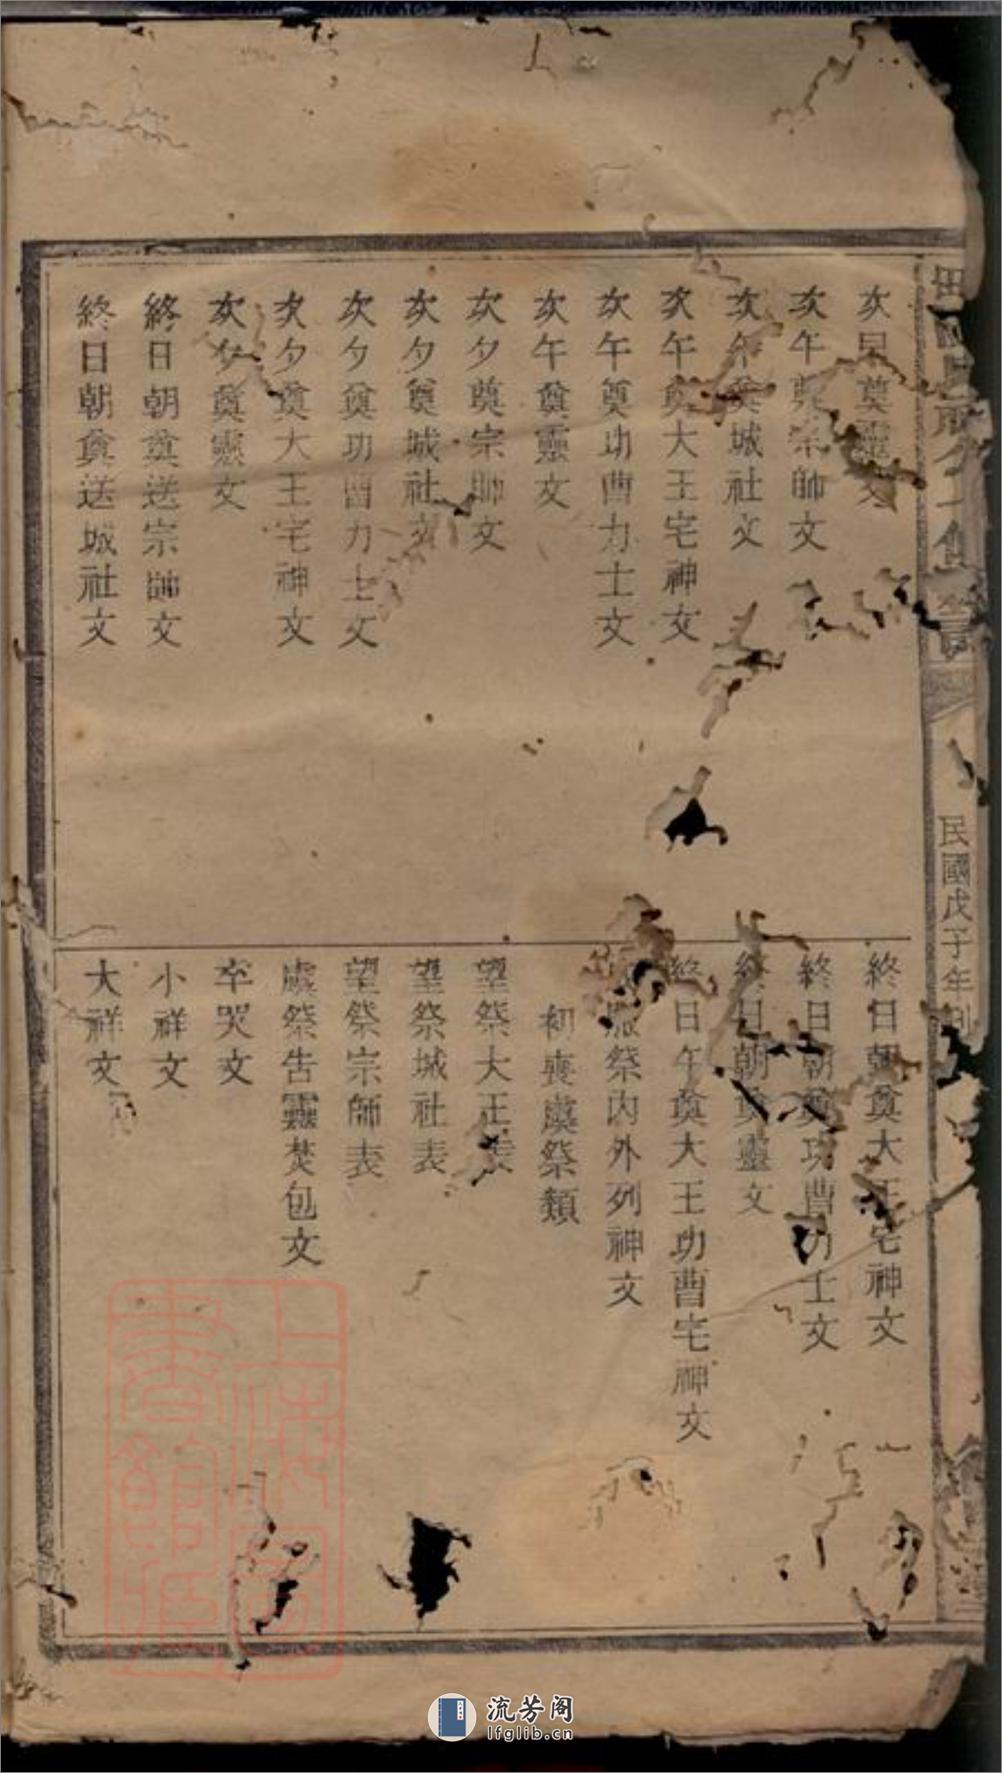 次早奠靈文
次午奠宗師文
次午奠城社文
次午奠大王宅神文
次午奠功曹力士文
次午奠靈文
次夕奠宗師文
次夕奠城社文
次夕奠功曹力士文
次夕奠大王宅神文
次夕奠靈文
終日朝奠送宗師文
終日朝奠送城社文
終日朝奠大王宅神文
終日朝奠功曹力士文
終日朝奠靈文
終日午奠大王功曹宅神文
服祭內外列神文
初喪虞祭類
望祭大王表
望祭城社表
望祭宗師表
虞祭告靈焚包文
卒哭文
小祥文
大祥文
民國戊子年刊
上海圖書館藏
流芳阁
lfglib.cn